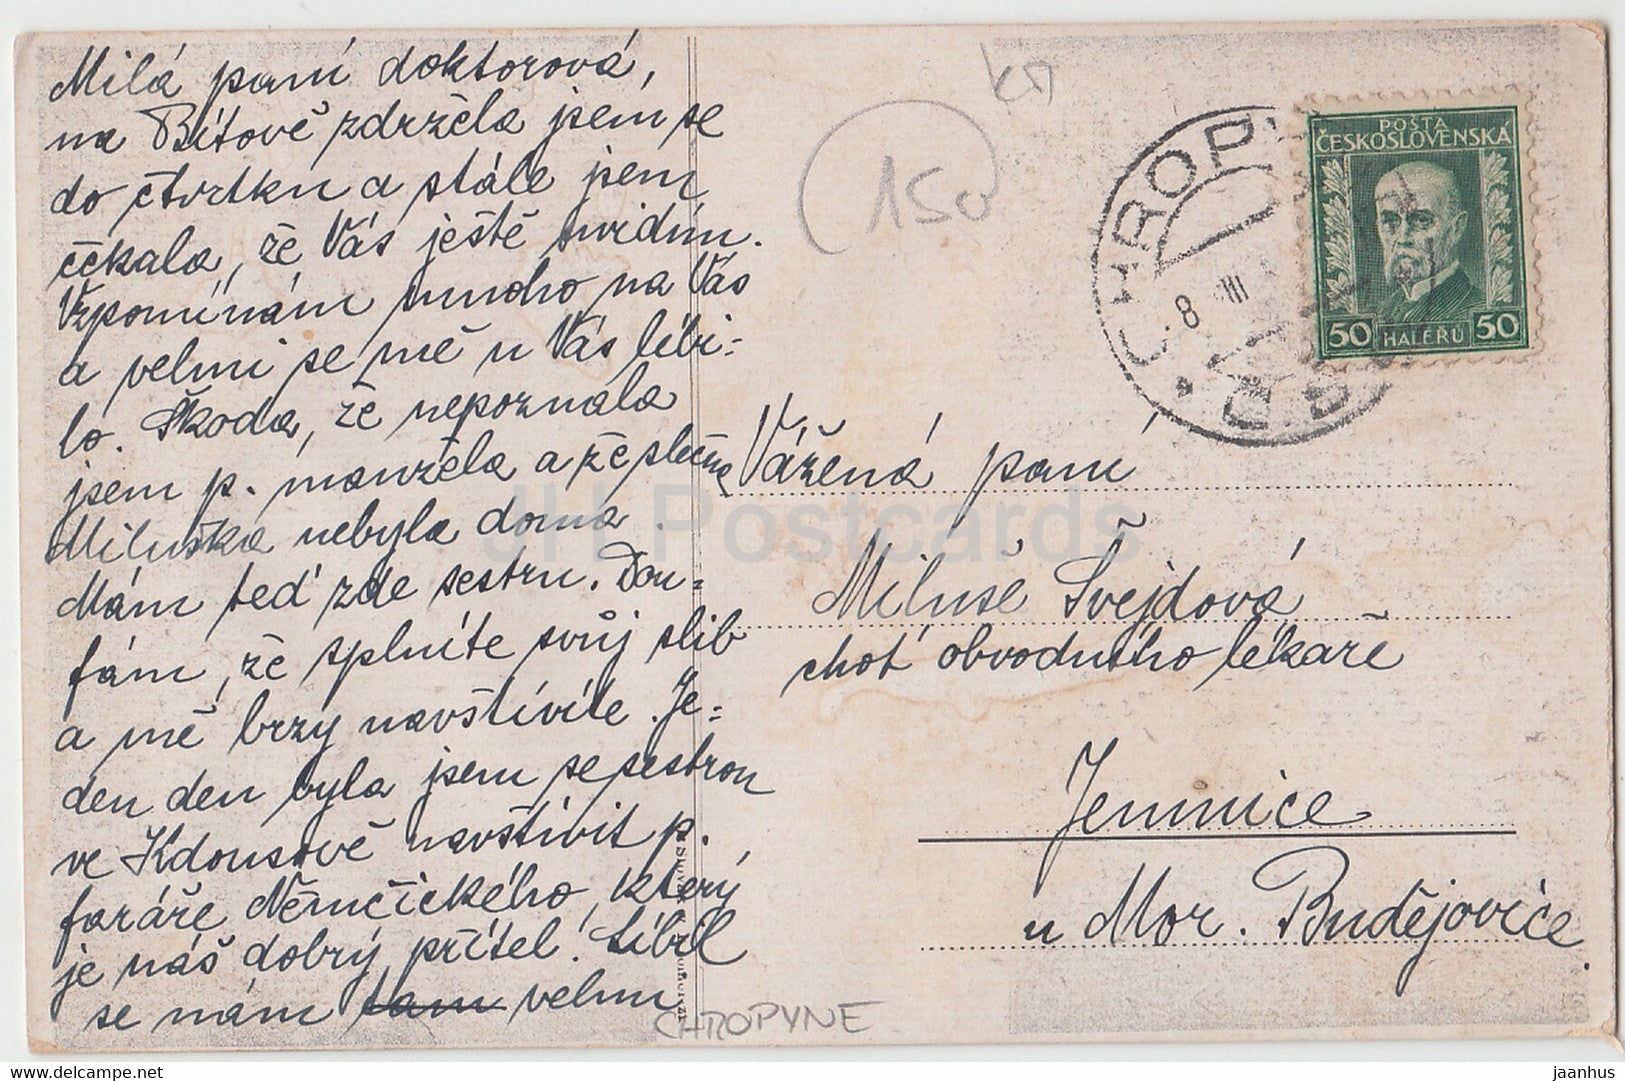 Milá paní doktorová,
na Bítově zdržela jsem se
do čtvrtku a stále jsem
čekala, že Vás ještě uvidím.
Vzpomínám mnoho na Vás
a velmi se mě u Vás líbi=
lo. Škoda, že nepoznala
jsem p. manžela a že slečna
Miluška nebyla doma.
Mám teď zde sestru. Dou=
fám, že splníte svůj slib
a mě brzy navštívíte. Je=
den den byla jsem se sestrou
ve Kdousově navštívit p.
faráře Němčického, který
je náš dobrý přítel. Líbil
se nám tam velmi
CHROPYNE
KA
150
CHROPY
8 III
POŠTA
ČESKOSLOVENSKÁ
50 HALÉŘŮ 50
Vážená paní
Miluše Švejdová
choť obvodního lékaře
Jemnice
u Mor. Budějovice.
JH Postcards
www.delcampe.net
jaanhus